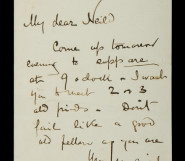 My dear Neild
Come up tomorrow
evening to
at 9 o'clock - I want
you to meet 2 or 3
old friends - Don't
fail like a good
old fellow as you are